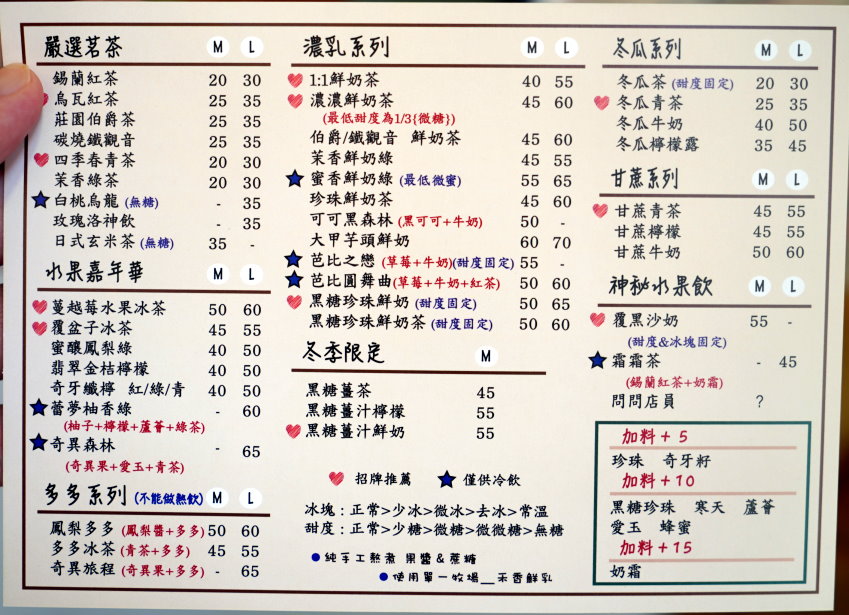 嚴選茗茶 M L
錫蘭紅茶 20 30
烏瓦紅茶 25 35
莊園伯爵茶 25 35
碳燒鐵觀音 25 35
四季春青茶 20 30
茉香綠茶 20 30
白桃烏龍 (無糖) - 35
玫瑰洛神飲 - 35
日式玄米茶 (無糖) 35 -
水果嘉年華 M L
蔓越莓水果冰茶 50 60
覆盆子冰茶 45 55
蜜釀鳳梨綠 40 50
翡翠金桔檸檬 40 50
奇牙纖檸 紅/綠/青 40 50
蕾夢柚香綠 - 60
(柚子+檸檬+蘆薈+綠茶)
奇異森林 - 65
(奇異果+愛玉+青茶)
多多系列 (不能做熱飲) M L
鳳梨多多 (鳳梨醬+多多) 50 60
多多冰茶 (青茶+多多) 45 55
奇異旅程 (奇異果+多多) - 65
濃乳系列 M L
1:1鮮奶茶 40 55
濃濃鮮奶茶 45 60
(最低甜度為1/3{微糖})
伯爵/鐵觀音 鮮奶茶 45 60
茉香鮮奶綠 45 55
蜜香鮮奶綠 (最低微蜜) 55 65
珍珠鮮奶茶 45 60
可可黑森林 (黑可可+牛奶) 50 -
大甲芋頭鮮奶 60 70
芭比之戀 (草莓+牛奶)(甜度固定) 55 -
芭比圓舞曲 (草莓+牛奶+紅茶) 50 60
黑糖珍珠鮮奶 (甜度固定) 50 65
黑糖珍珠鮮奶茶 (甜度固定) 50 60
冬季限定 M
黑糖薑茶 45
黑糖薑汁檸檬 55
黑糖薑汁鮮奶 55
招牌推薦 僅供冷飲
冰塊：正常>少冰>微冰>去冰>常溫
甜度：正常>少糖>微糖>微微糖>無糖
純手工熬煮 果醬&蔗糖
使用單一牧場__禾香鮮乳
冬瓜系列 M L
冬瓜茶 (甜度固定) 20 30
冬瓜青茶 25 35
冬瓜牛奶 40 50
冬瓜檸檬露 35 45
甘蔗系列 M L
甘蔗青茶 45 55
甘蔗檸檬 45 55
甘蔗牛奶 50 60
神祕水果飲 M L
覆黑沙奶 55 -
(甜度&冰塊固定)
霜霜茶 - 45
(錫蘭紅茶+奶霜)
問問店員 ?
加料+5
珍珠 奇牙籽
加料+10
黑糖珍珠 寒天 蘆薈
愛玉 蜂蜜
加料+15
奶霜